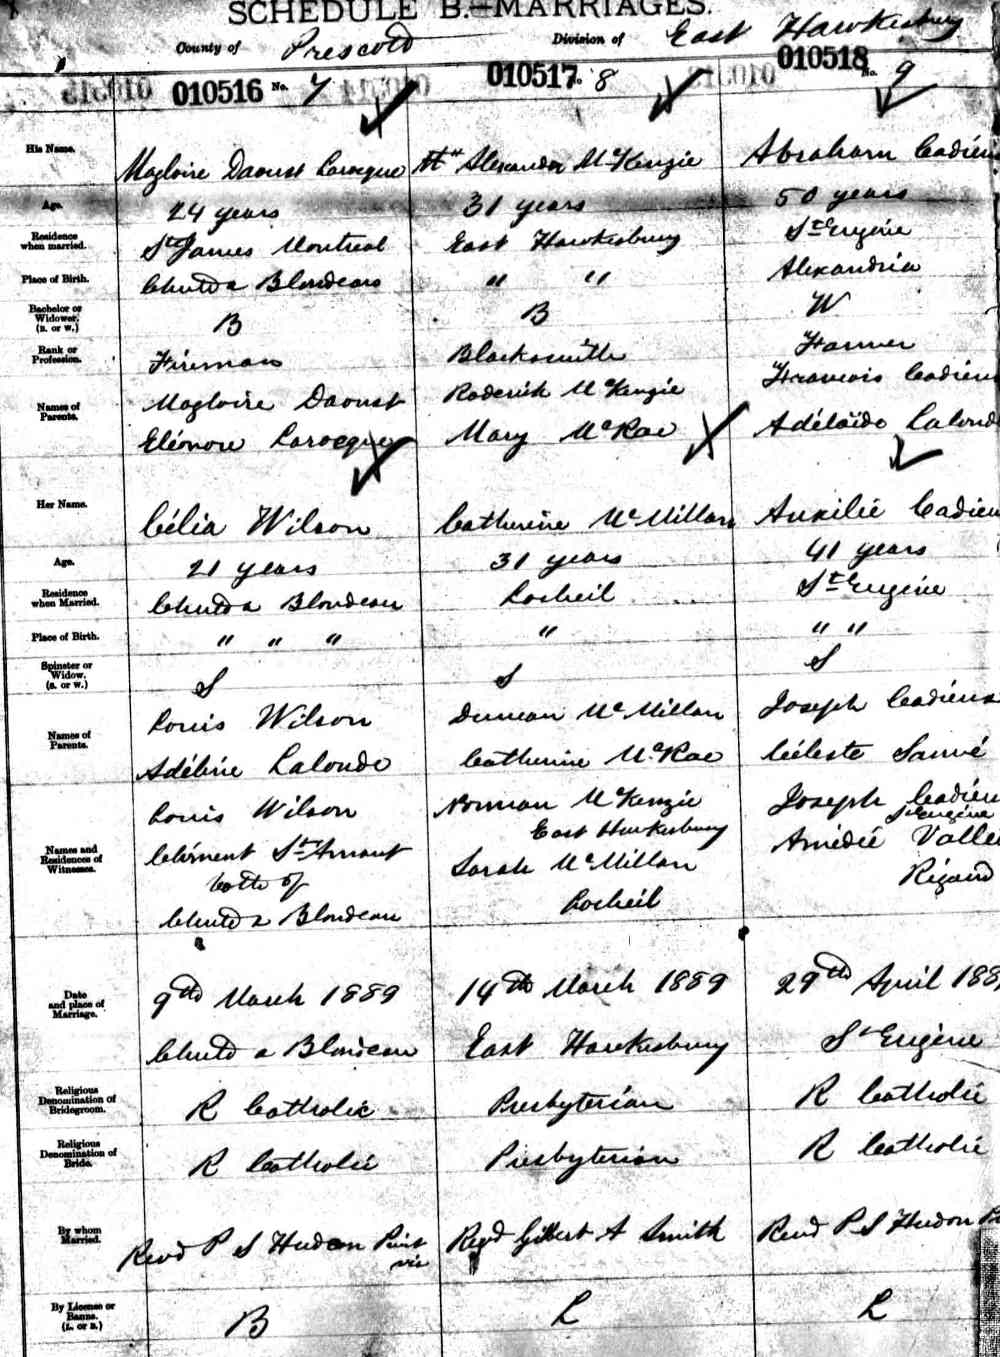 SCHEDULE B.—MARRIAGES.
County of Prescott Division of East Hawkesbury
010516 No. 7 010517 8 010518 No. 9
His Name. Magloire Daoust Larocque Wm Alexander McKenzie Abraham Cadieu
Age. 24 years 31 years 50 years
Residence when married. St James Montreal East Hawkesbury St Eugène
Place of Birth. Chute a Blondeau " " Alexandria
Bachelor or Widower. (B. or W.) B B W
Rank or Profession. Fireman Blacksmith Farmer
Names of Parents. Magloire Daoust Roderick McKenzie Francois Cadieu
Eléonore Larocque Mary McRae Adélaïde Lalonde
Her Name. Célia Wilson Catherine McMillan Auxilié Cadieu
Age. 21 years 31 years 41 years
Residence when Married. Chute a Blondeau Locheil St Eugène
Place of Birth. " " " " " "
Spinster or Widow. (S. or W.) S S S
Names of Parents. Louis Wilson Duncan McMillan Joseph Cadieux
Adéline Lalonde Catherine McRae Céleste Sauvé
Names and Residences of Witnesses. Louis Wilson Norman McKenzie Joseph Cadieu
East Hawkesbury St Eugène
Clément St Amant Sarah McMillan Amédée Vallée
both of Locheil Rigaud
Chute a Blondeau
Date and place of Marriage. 9th March 1889 14th March 1889 29th April 188
Chute a Blondeau East Hawkesbury St Eugène
Religious Denomination of Bridegroom. R Catholic Presbyterian R Catholic
Religious Denomination of Bride. R Catholic Presbyterian R Catholic
By whom Married. Revd P S Hudon Revd Gilbert A Smith Revd P S Hudon
By License or Banns. (L. or B.) B L L